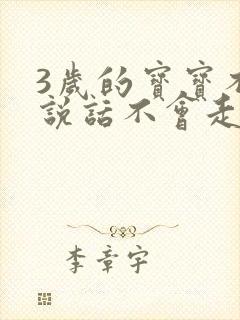 3歲的寶寶不
說話不會走
李章宇